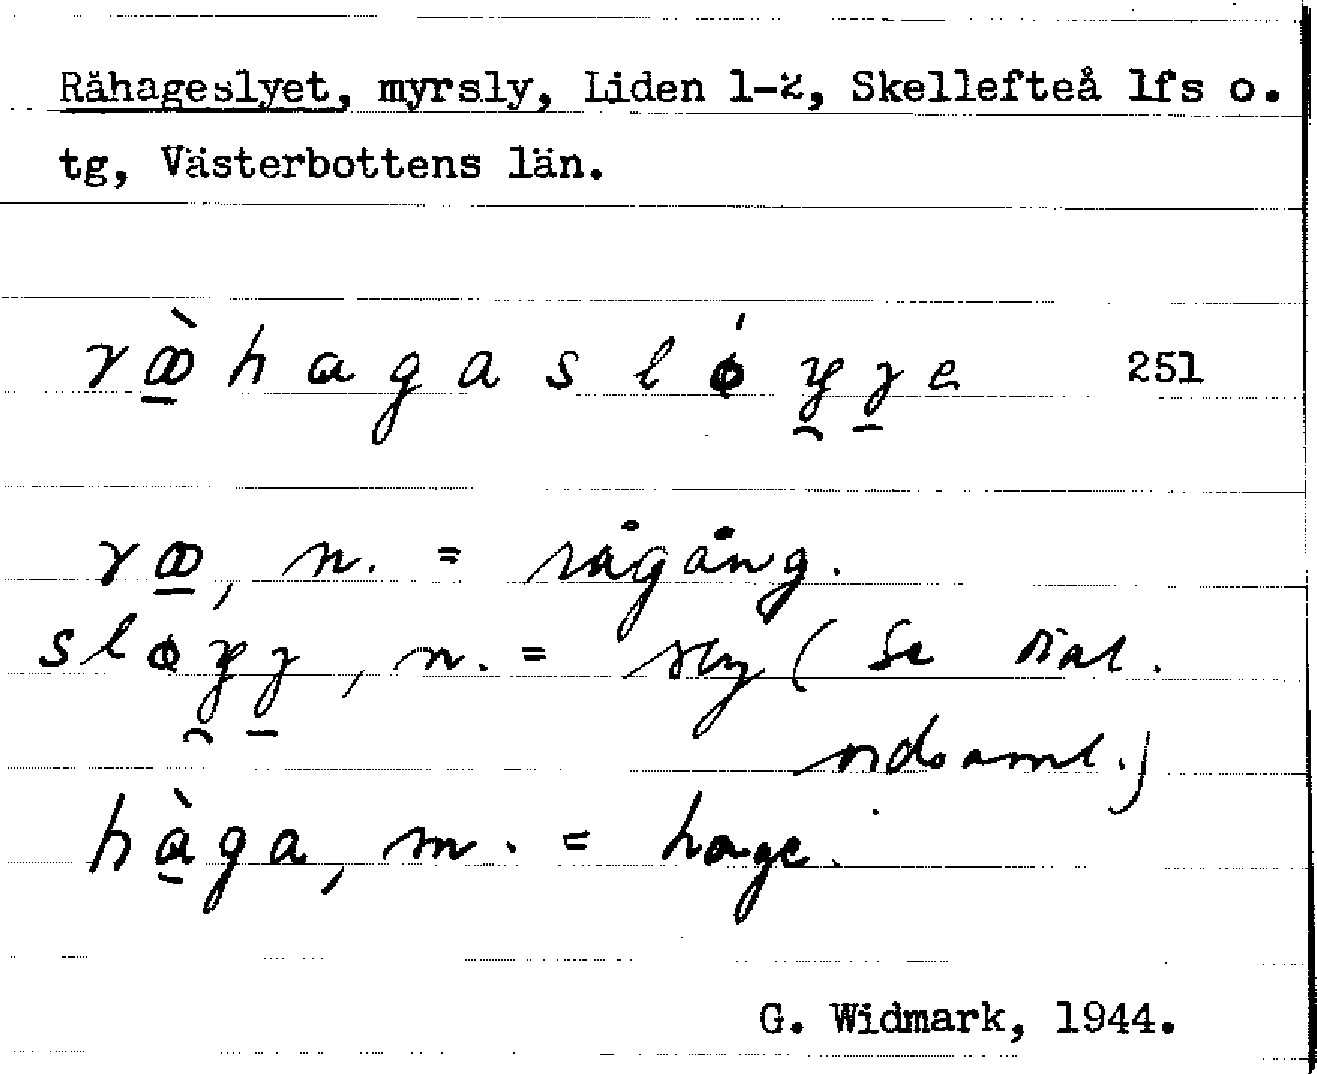 Råhageslyet, myrsly, Liden 1-2, Skellefteå lfs o.
tg, Västerbottens län.
251
n. = rågång.
n. = sly (Se dial.
ordsaml.)
hàga, m. = hage.
G. Widmark, 1944.